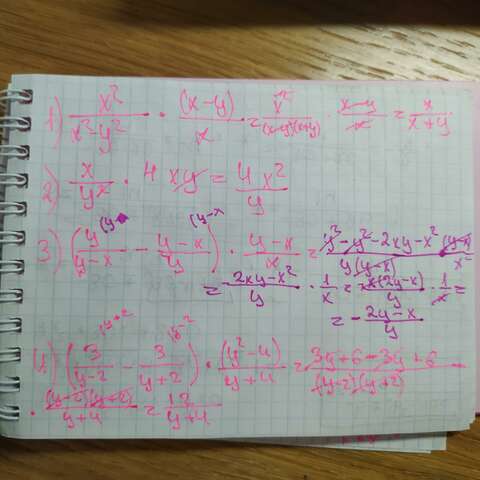 1) x²/(x²-y²) · (x-y)/x = x²/((x-y)(x+y)) · (x-y)/x = x/(x+y)
2) x/yx · 4xy = 4x²/y
3) (y/(y-x) - (y-x)/y) · (y-x)/x = (y² - y² - 2xy - x² (y-x))/(y(y-x) x²)
= (2xy-x²)/y · 1/x = x(2y-x)/y · 1/x =
= - (2y-x)/y
4) (3/(y-2) - 3/(y+2)) · (y²-4)/(y+4) = (3y+6-3y+6)/((y-2)(y+2))
· (y-2)(y+2)/(y+4) = 12/(y+4)